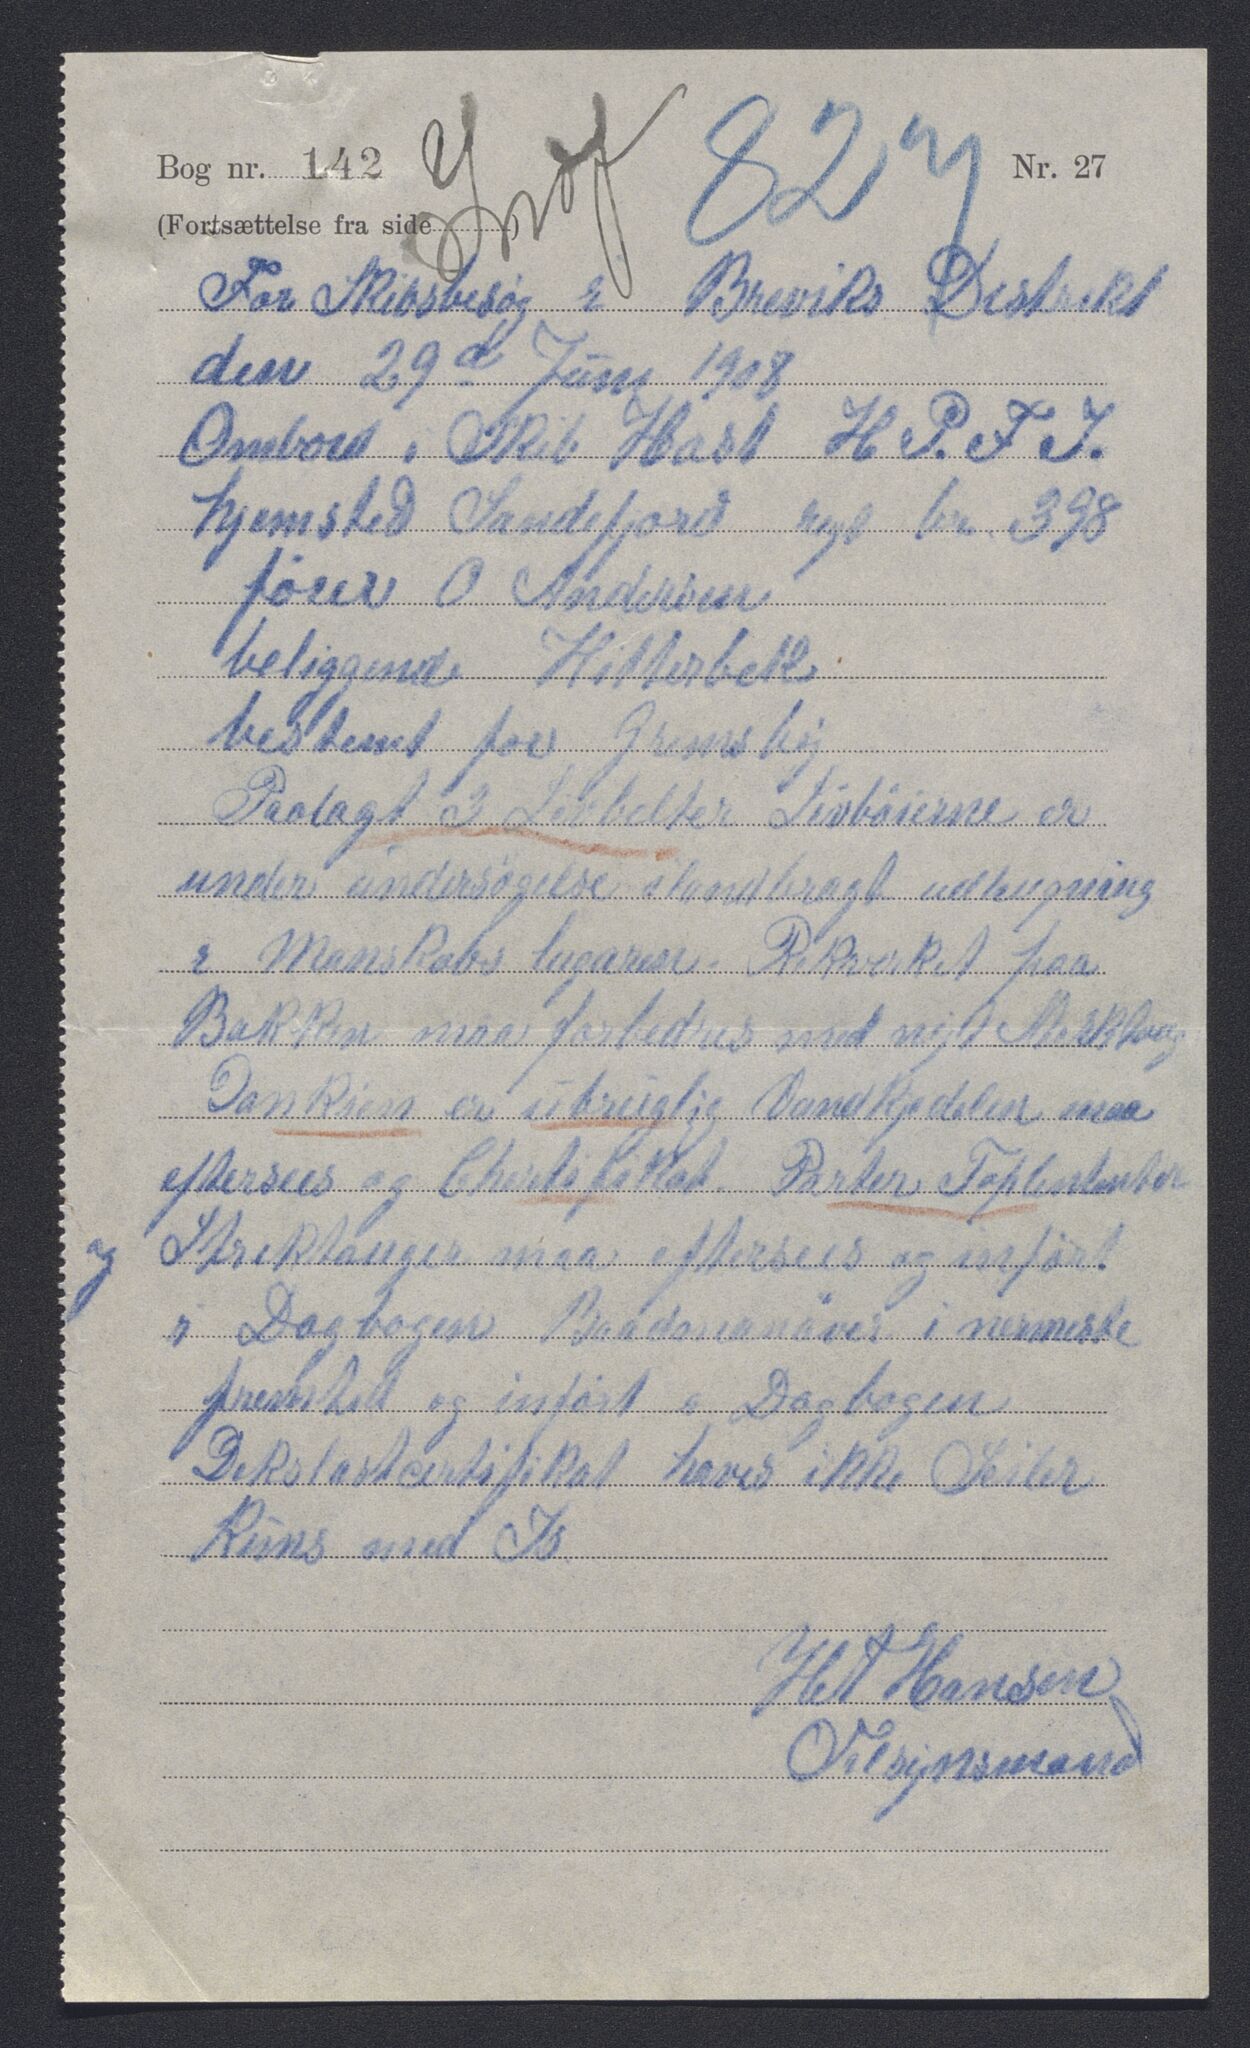 Bog nr. 142
827
Nr. 27
(Fortsættelse fra side )
For Skibsbesøg i Breviks Distrikt
den 29d Juni 1908
Ombord i Skib Hast H. P. F. J.
hjemsted Sandefjord regt br. 398
förer O Andersen
beliggende Hitterbek
bestemt for Grimsby
Paalagt 3 Livbelter Livböierne er
under undersøgelse istandbragt udlupning
i Manskabs lugaren. Rekverket paa
Bakken maa forbedres med nyt
er übrüglig Vandkjedelen maa
eftersees og Cherti fikat. Parter Toplenter
og Strektauger maa eftersees og infört
i Dagbogen Baadmanöver i nermeste
fremtid og infört i Dagbogen
Dekslastcertifikat haves ikke Seiler
Küns med Is.
H A Hansen
Tilsynsmand